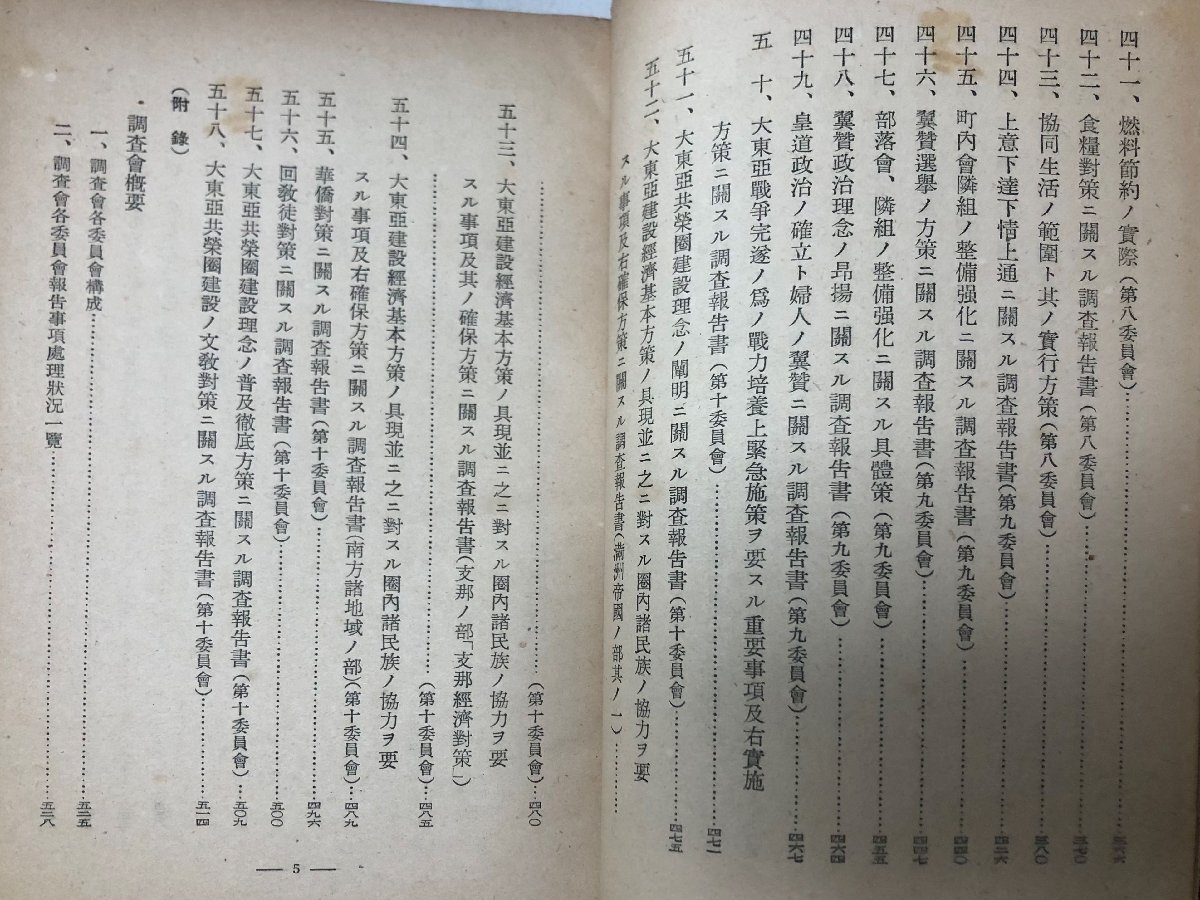 四十一、燃料節約ノ實際(第八委員會)…………三六六
四十二、食糧對策ニ關スル調査報告書(第八委員會)…………三七〇
四十三、協同生活ノ範圍ト其ノ實行方策(第八委員會)…………三八〇
四十四、上意下達下情上通ニ關スル調査報告書(第九委員會)…………四二六
四十五、町內會隣組ノ整備强化ニ關スル調査報告書(第九委員會)…………四四〇
四十六、翼贊選擧ノ方策ニ關スル調査報告書(第九委員會)…………四四七
四十七、部落會、隣組ノ整備强化ニ關スル具體策(第九委員會)…………四五五
四十八、翼贊政治理念ノ昻揚ニ關スル調査報告書(第九委員會)…………四六四
四十九、皇道政治ノ確立ト婦人ノ翼贊ニ關スル調査報告書(第九委員會)…………四六七
五 十、大東亞戰爭完遂ノ爲ノ戰力培養上緊急施策ヲ要スル重要事項及右實施
方策ニ關スル調査報告書(第十委員會)…………四七一
五十一、大東亞共榮圈建設理念ノ闡明ニ關スル調査報告書(第十委員會)…………四七五
五十二、大東亞建設經濟基本方策ノ具現並ニ之ニ對スル圈內諸民族ノ協力ヲ要
スル事項及右確保方策ニ關スル調査報告書(滿洲帝國ノ部其ノ一)…………
…………(第十委員會)…四八〇
五十三、大東亞建設經濟基本方策ノ具現並ニ之ニ對スル圈內諸民族ノ協力ヲ要
スル事項及其ノ確保方策ニ關スル調査報告書(支那ノ部「支那經濟對策」)
…………(第十委員會)…四八五
五十四、大東亞建設經濟基本方策ノ具現並ニ之ニ對スル圈內諸民族ノ協力ヲ要
スル事項及右確保方策ニ關スル調査報告書(南方諸地域ノ部)(第十委員會)…四八九
五十五、華僑對策ニ關スル調査報告書(第十委員會)…………四九六
五十六、回敎徒對策ニ關スル調査報告書(第十委員會)…………五〇〇
五十七、大東亞共榮圈建設理念ノ普及徹底方策ニ關スル調査報告書(第十委員會)…五〇九
五十八、大東亞共榮圈建設ノ文敎對策ニ關スル調査報告書(第十委員會)…………五一四
(附 錄)
・調査會槪要
一、調査會各委員會構成…………五三五
二、調査會各委員會報告事項處理狀況一覽…………五三八
— 5 —